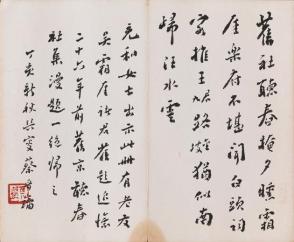 舊社聽春掩夕曛霜
厓樂府不堪聞白頭詞
客推王路猶似南
歸汪水雲
充和女士出示此冊有老友
吳霜厓諸君舊題追憶
二十六年前舊京聽春
社集漫題一絕歸之
丁亥新秋吳寧蔡